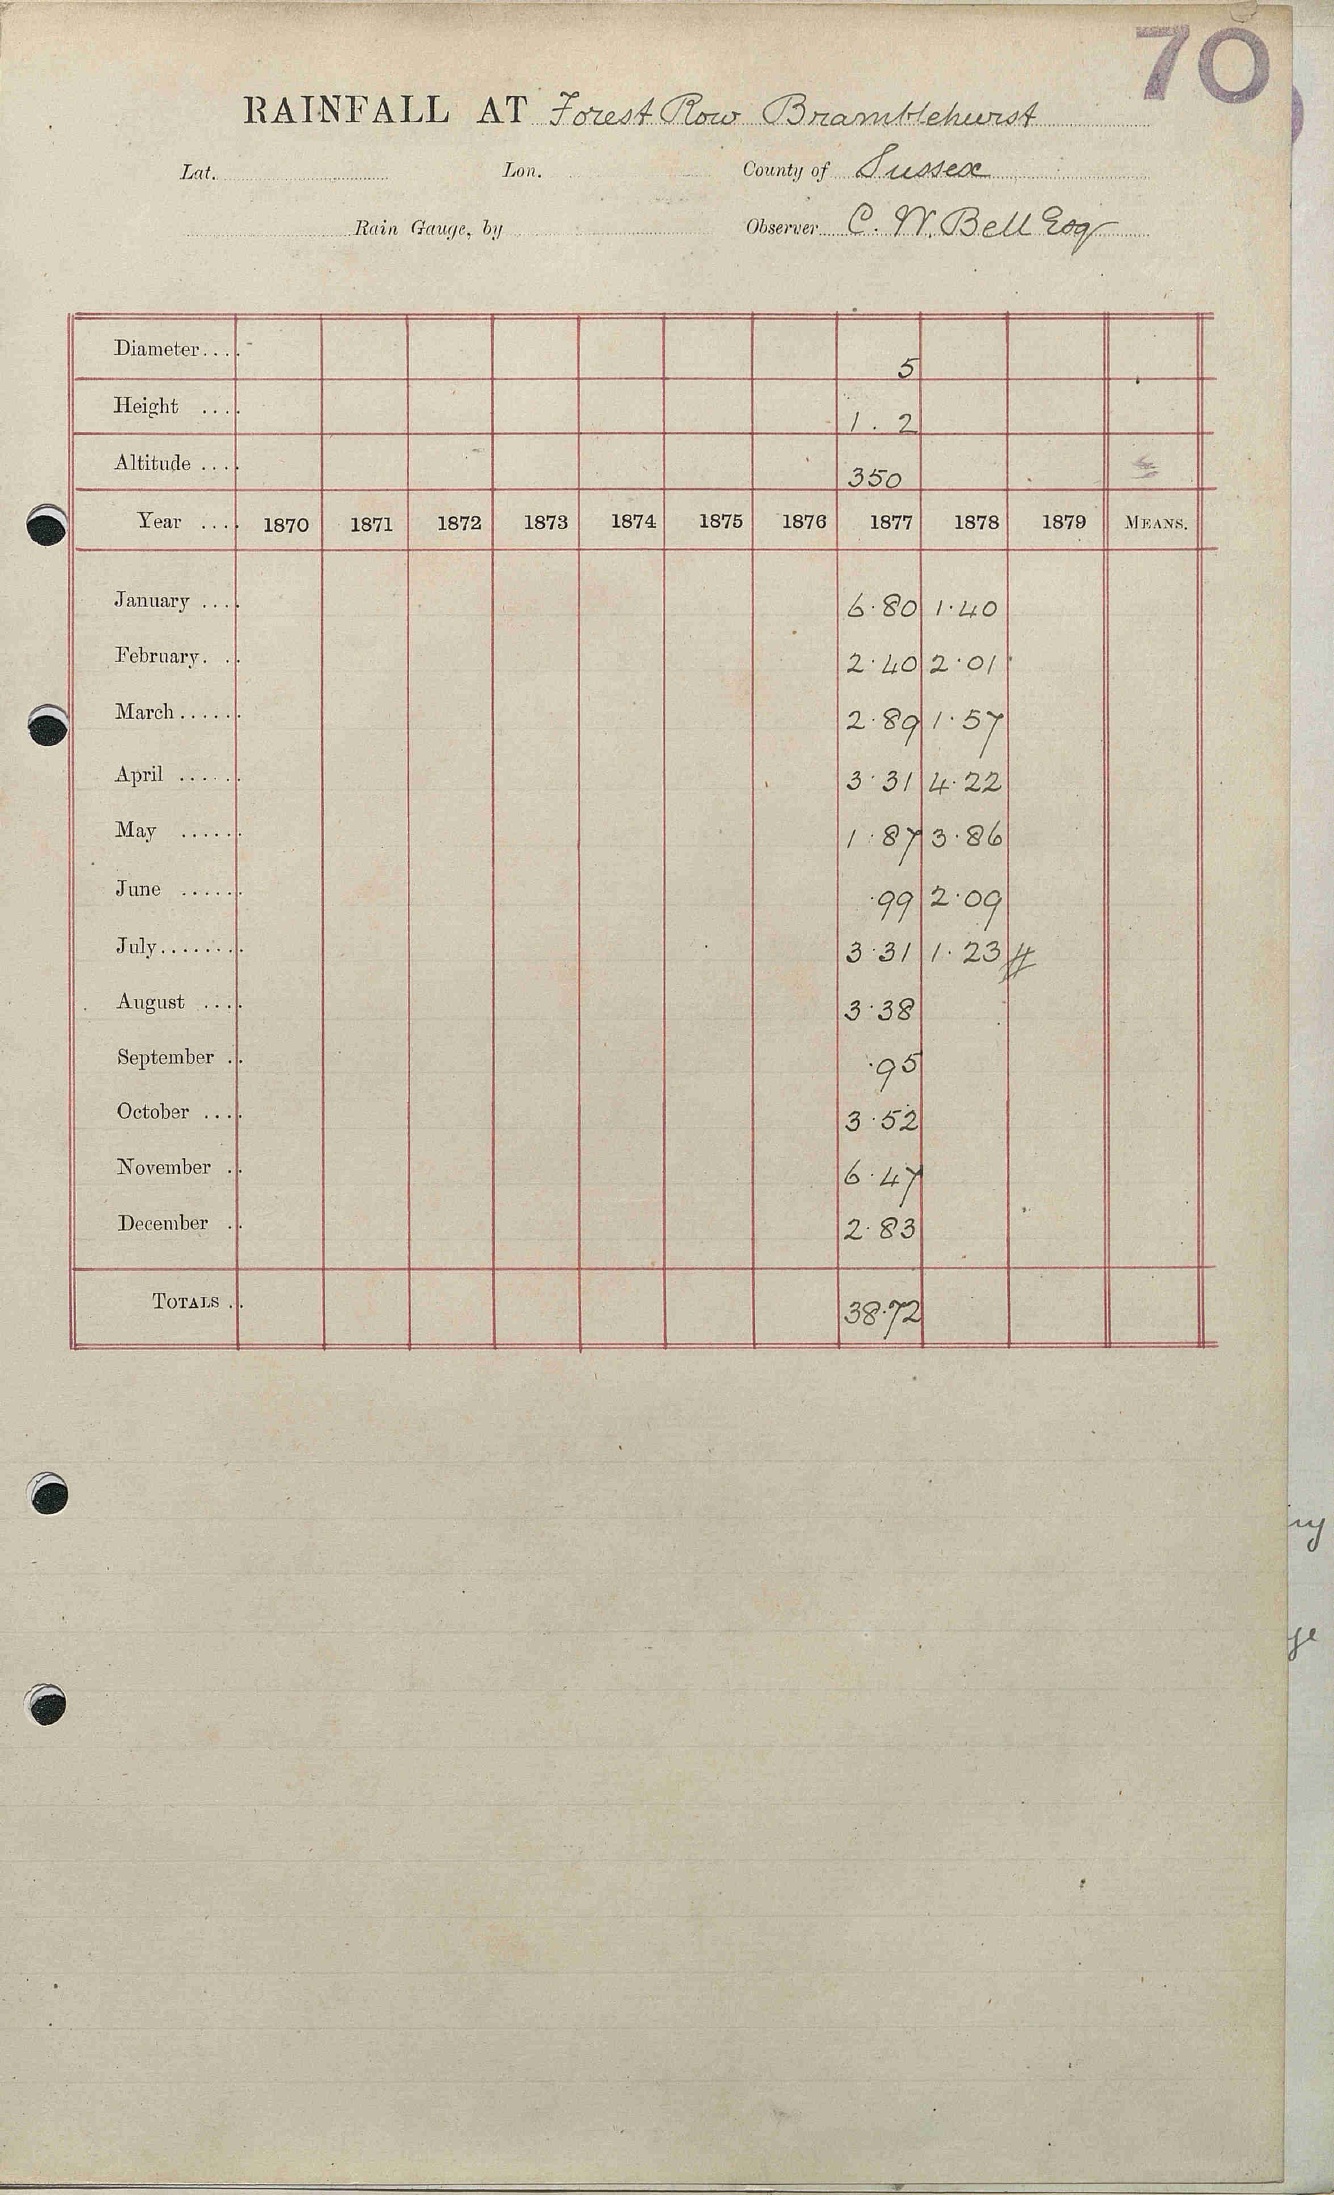 70
RAINFALL AT Forest Row Bramblehurst
Lat. Lon. County of Sussex
Rain Gauge, by Observer C. W. Bell Esq
Diameter.... 5
Height .... 1. 2
Altitude .... 350
Year .... 1870 1871 1872 1873 1874 1875 1876 1877 1878 1879 MEANS.
January .... 6.80 1.40
February. .. 2.40 2.01
March...... 2.89 1.57
April ...... 3.31 4.22
May ...... 1.87 3.86
June ...... .99 2.09
July........ 3.31 1.23 #
August .... 3.38
September .. .95
October .... 3.52
November .. 6.47
December .. 2.83
TOTALS .. 38.72